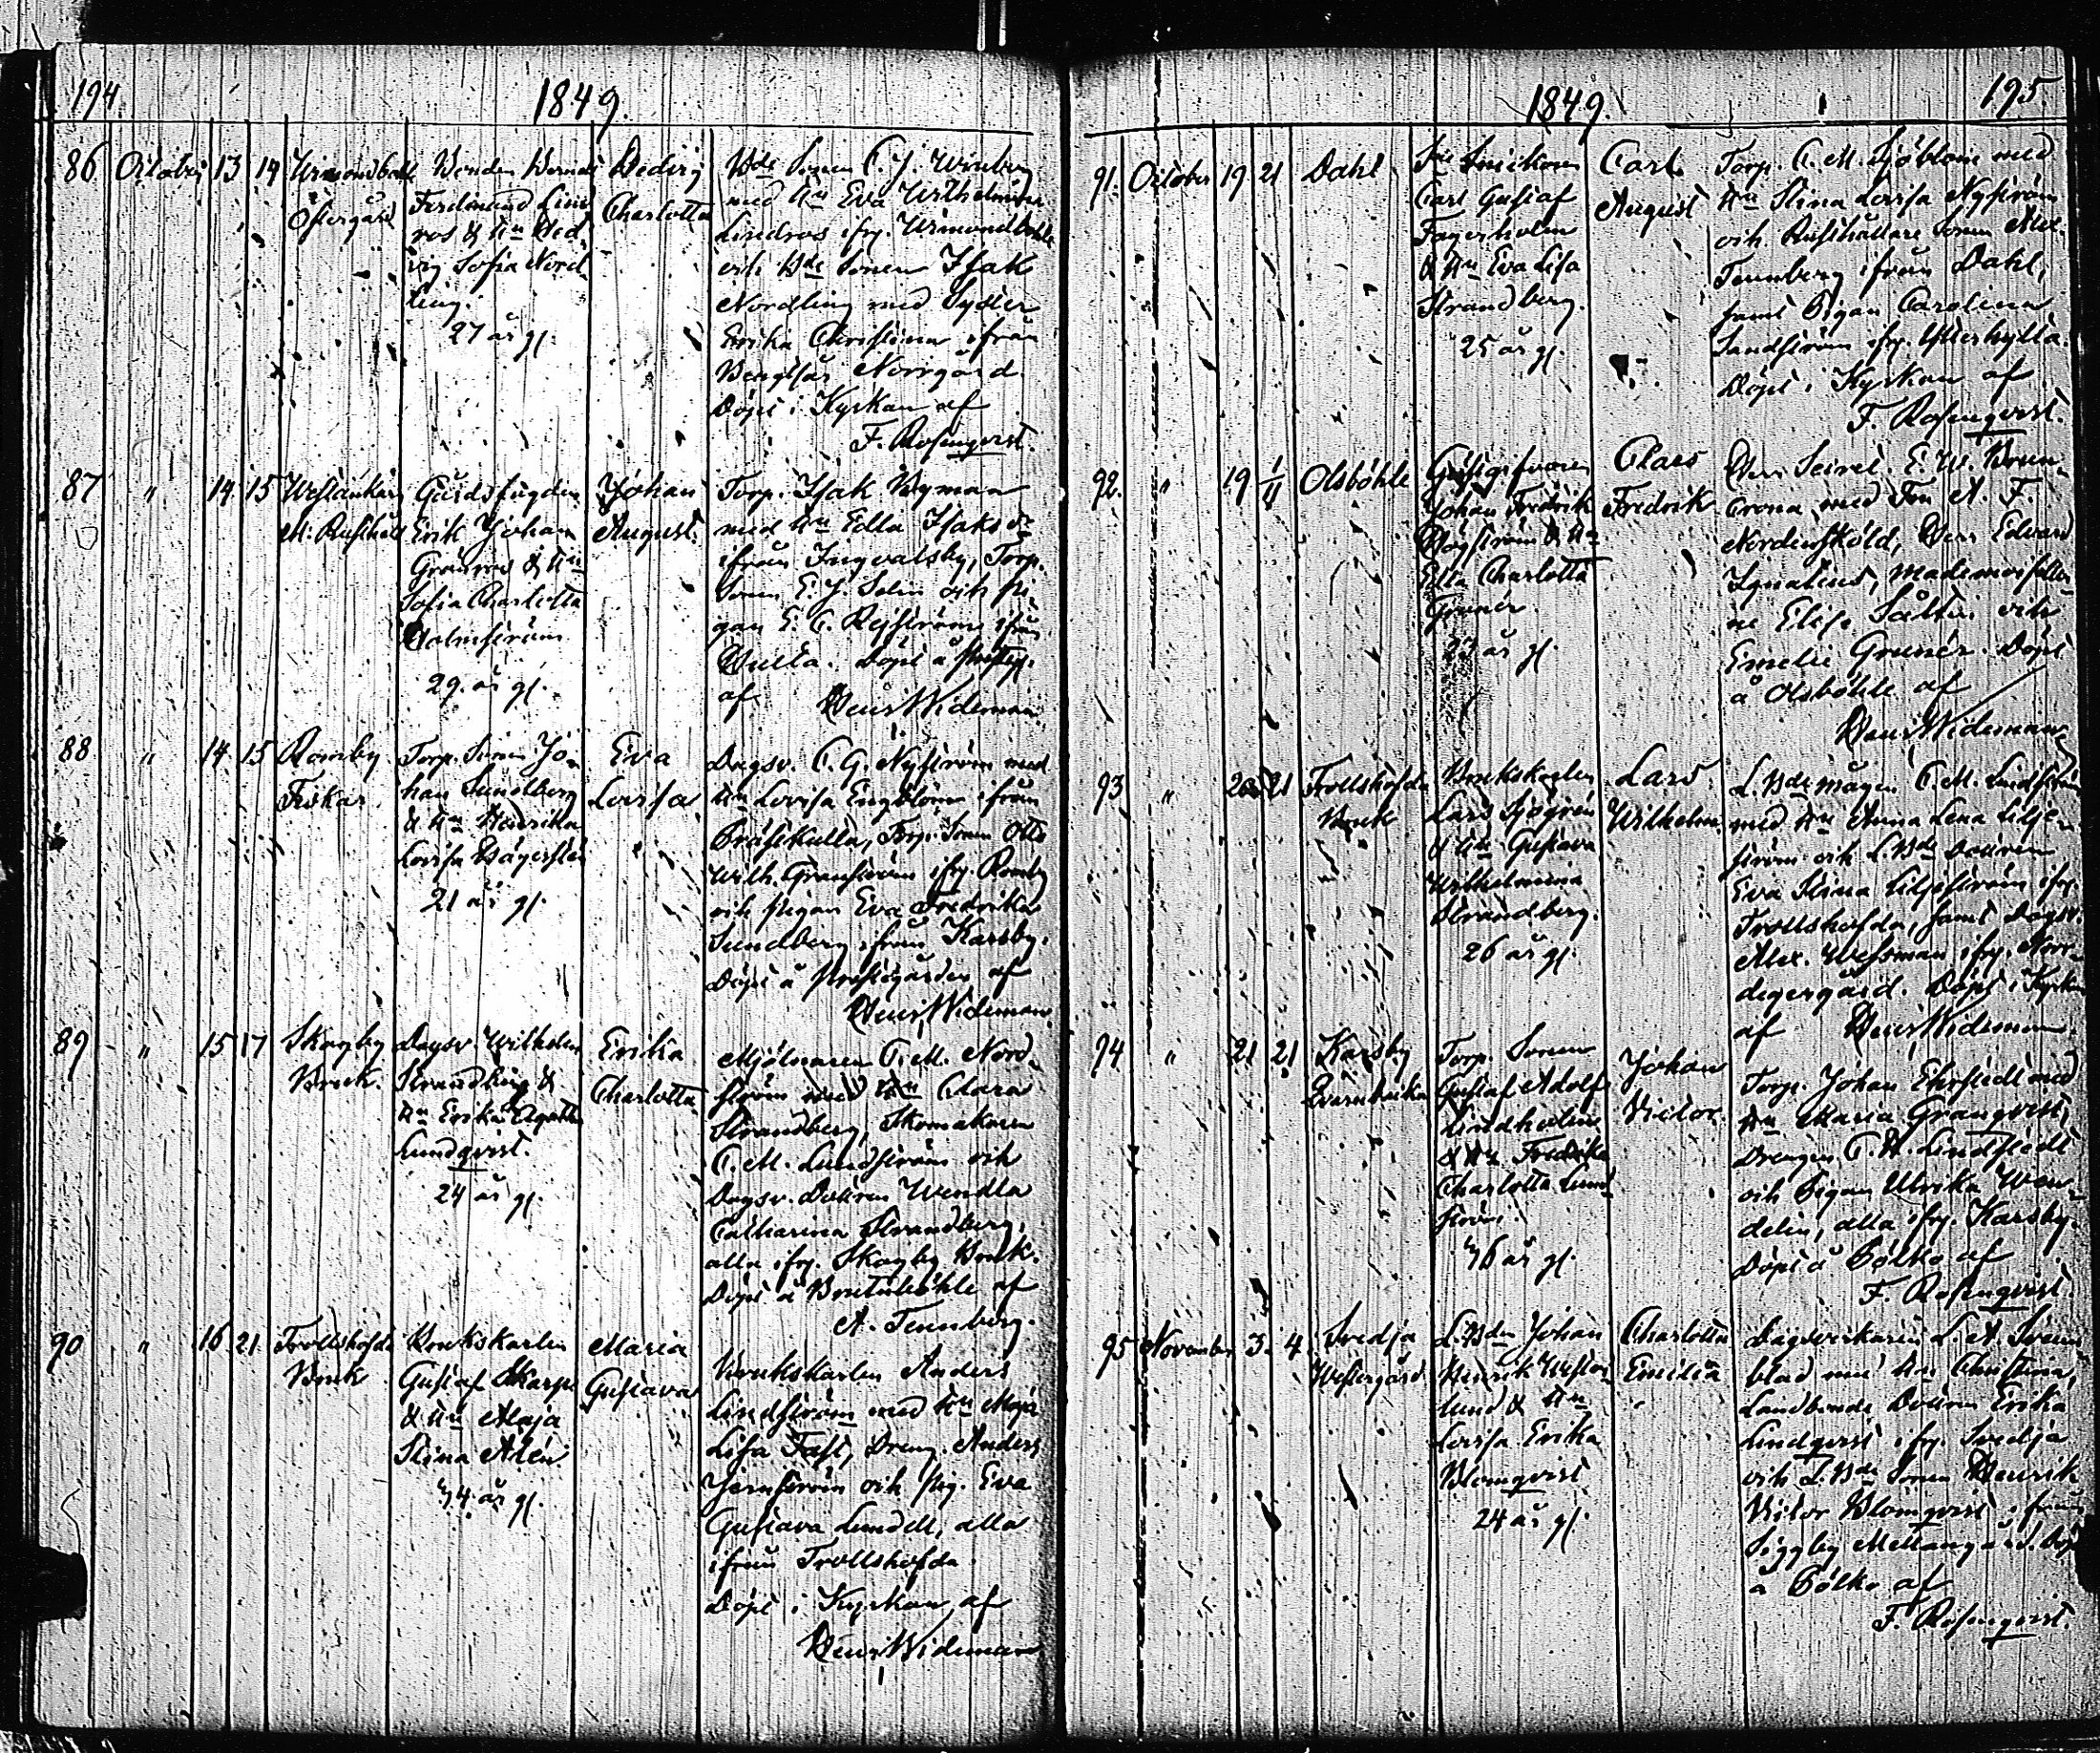 194
1849.
86 October 13 14
Östergård
Bonden
Ferdinand Lind
ros & Hu Hed
vig Sofia Nord
ling.
27 år gl.
Hedvig
Charlotta
Bde Sonen C. J.
med Hu Eva Wilhelmina
Lindros ifr.
och Bde Sonen Isak
Nordling med Syster
Erika Christina ifrån
Norrgård.
Döpt i Kyrkan af
F. Rosenqvist.
87 " 14 15
Erik Johan
& Hu
Sofia Charlotta
Holmström
29 år gl.
Johan
August.
Torp. Isak
med Hu Edla Isaks dr
ifrån Ingvalsby, Torp.
Sonen E. J. och Pi
gan E. C. ifrån
Döpt å
af Henr. Wideman.
88 " 14 15 Romby
Torp. Sonen Jo
han Sundberg
& Hu Henrika
Lovisa Hägerstén
21 år gl.
Eva
Lovisa
Dagsv. C. G. Nyström med
Hu Lovisa Engblom ifrån
Torp. Sonen Otto
Wilh. Granström ifr. Romby
och Pigan Eva Fredrika
Sundberg ifrån Karsby.
Döpt å Prestgården af
Henr. Wideman.
89 " 15 17 Skogby
Bruk.
Dagsv. Wilhelm
Strandberg &
Hu Erika
Lundqvist.
24 år gl.
Erika
Charlotta
Mjölnaren C. M. Nord
ström med Hu Clara
Strandberg, Skomakaren
C. M. Lundström och
Dagsv. Dottren Wendla
Catharina Strandberg,
alla ifr. Skogby Bruk.
Döpt å af
A. Tennberg.
90 " 16 21 Trollshofda
Bruk
Brukskarlen
Gustaf Skarp
& Hu Maja
Stina Alén
34 år gl.
Maria
Gustava
Brukskarlen Anders
Lindström med Hu Maja
Lisa Fast, Dreng. Anders
Jernström och Pig. Eva
Gustava Lundell, alla
ifrån Trollshofda.
Döpt i Kyrkan af
Henr. Wideman
1849.
195
91. October 19 21 Dahl
Carl Gustaf
Fagerholm
& Hu Eva Lisa
Strandberg.
25 år gl.
Carl
August
Torp. C. M. Sjöblom med
Hu Stina Lovisa Nyström
och Rusthållare Sonen Alex.
Tennberg ifrån Dahl,
samt Pigan Carolina
Sandström ifr. Ytterhytta.
Döpt i Kyrkan af
F. Rosenqvist.
92. " 19 1/11 Olsböhle
Johan Fredrik
Högström & Hu
Edla Charlotta
Grunér.
år gl.
Claes
Fredrik
Herr E. W. Brun
crona med Fru A. F.
Nordenskjöld, Herr Edvard
Ignatius, Mademoiseller
ne Elise och
Emelie Grunér. Döpt
å Olsböhle af
Henr. Wideman
93 " 20 21 Trollshofda
Bruk
Lars Sjögren
& Hu Gustava
Wilhelmina
Strandberg.
26 år gl.
Lars
Wilhelm.
L. Bde mågen C. M. Lindström
med Hu Anna Lena Lilje
ström och L. Bde Dottren
Eva Stina Liljeström ifr.
Trollshofda, samt Dagsv.
Alex. ifr. Norr
degergård. Döpt i Kyrkan
af Henr. Wideman
94 " 21 21 Karsby
Torp. Sonen
Gustaf Adolf
Lindholm
& Hu Fredrika
Charlotta Lund
ström.
36 år gl.
Johan
Victor.
Torp. Johan Ehrstedt med
Hu Maria Granqvist,
Drengen C. A. Lindstedt
och Pigan Ulrika Wen
delin, alla ifr. Karsby.
Döpt å af
F. Rosenqvist
95 November 3. 4. Svedja
Westergård
L. Bdn Johan
Henrik Wester
lund & Hu
Lovisa Erika
Blomqvist
24 år gl.
Charlotta
Emilia
Dagsverkaren L. A.
blad med Hu Christina,
Landbonde Dottren Erika
Lindqvist ifr. Svedja
och L. Bde Sonen Henrik
Victor Blomqvist ifrån
Döpt
å af
F. Rosenqvist.